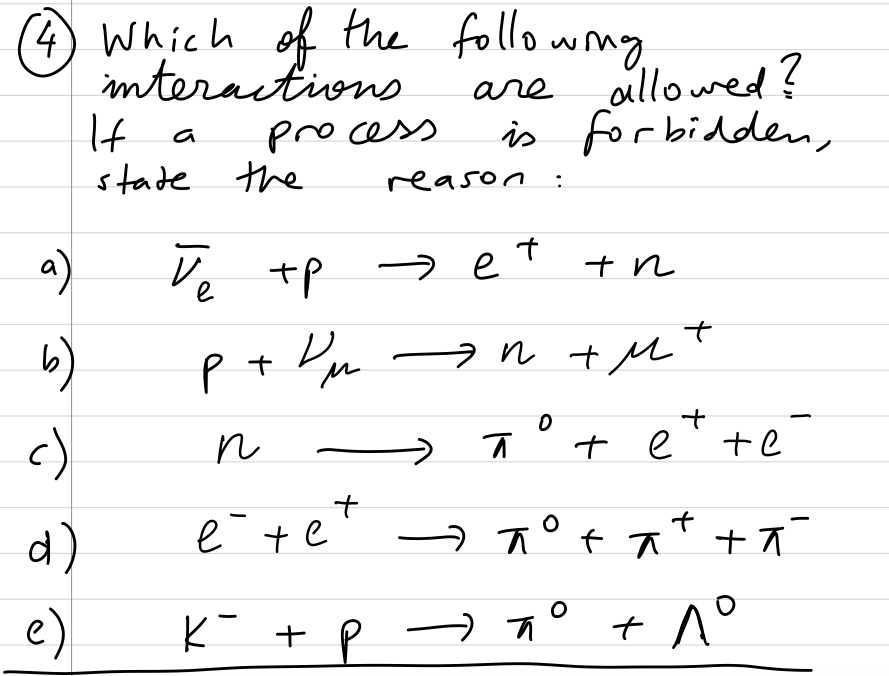 ④ Which of the following
interactions are allowed?
If a process is forbidden,
state the reason:
a) ν̅ₑ + p → e⁺ + n
b) p + ν_μ → n + μ⁺
c) n → π⁰ + e⁺ + e⁻
d) e⁻ + e⁺ → π⁰ + π⁺ + π⁻
e) K⁻ + p → π⁰ + Λ⁰